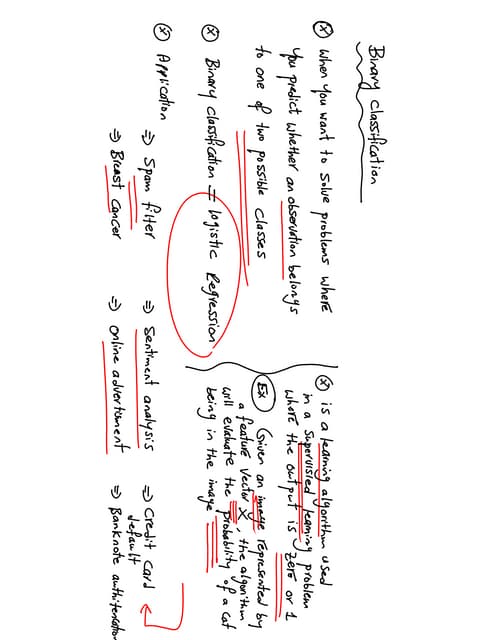 Binary classification
ⓧ When you want to solve problems where
you predict whether an observation belongs
to one of two possible classes
ⓧ Binary classification = logistic Regression
ⓧ Application
⇒ Spam filter
⇒ Breast Cancer
⇒ Sentiment analysis
⇒ online advertisment
⇒ Credit Card
default
⇒ Banknote authitencation
ⓧ is a learning algorithm used
in a supervisied learning problem
where the output is zero or 1
Ex Given an image represented by
a feature vector X, the algorithm
will evaluate the probability of a cat
being in the image